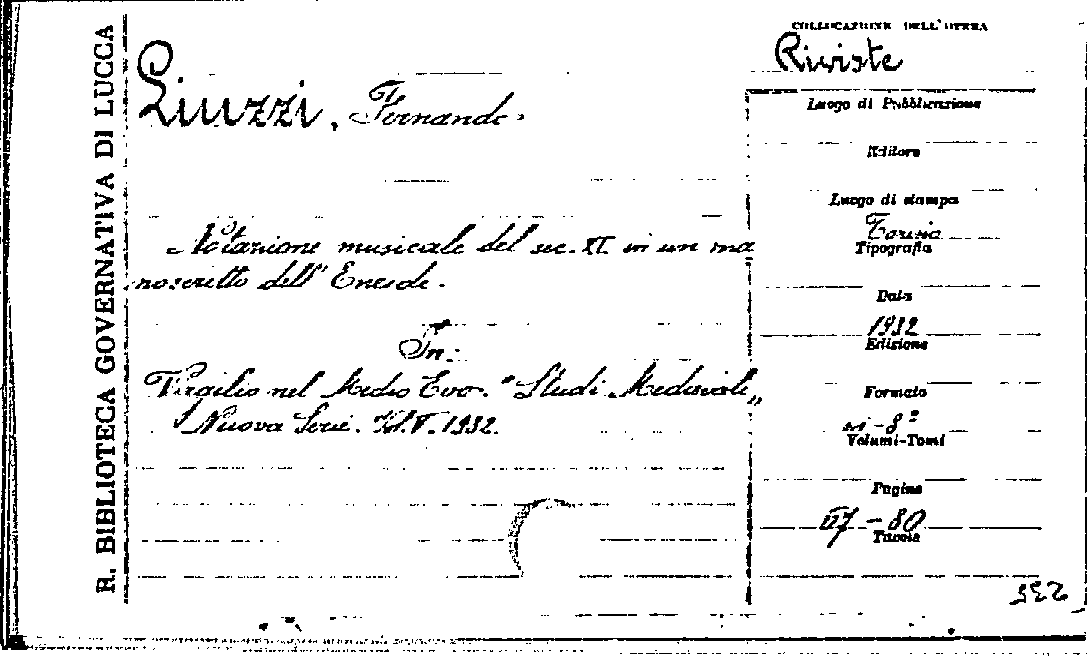 R. BIBLIOTECA GOVERNATIVA DI LUCCA
COLLOCAZIONE DELL'OPERA
Riviste
Liuzzi, Fernando.
Notazione musicale del sec. XI in un ma
noscritto dell'Eneide.
In:
Virgilio nel Medio Evo. "Studi Medievali"
Nuova Serie. Vol. V. 1932.
Luogo di Pubblicazione
Editore
Luogo di stampa
Torino
Tipografia
Data
1932
Edizione
Formato
in-8º
Volumi-Tomi
Pagine
- 80
Tavole